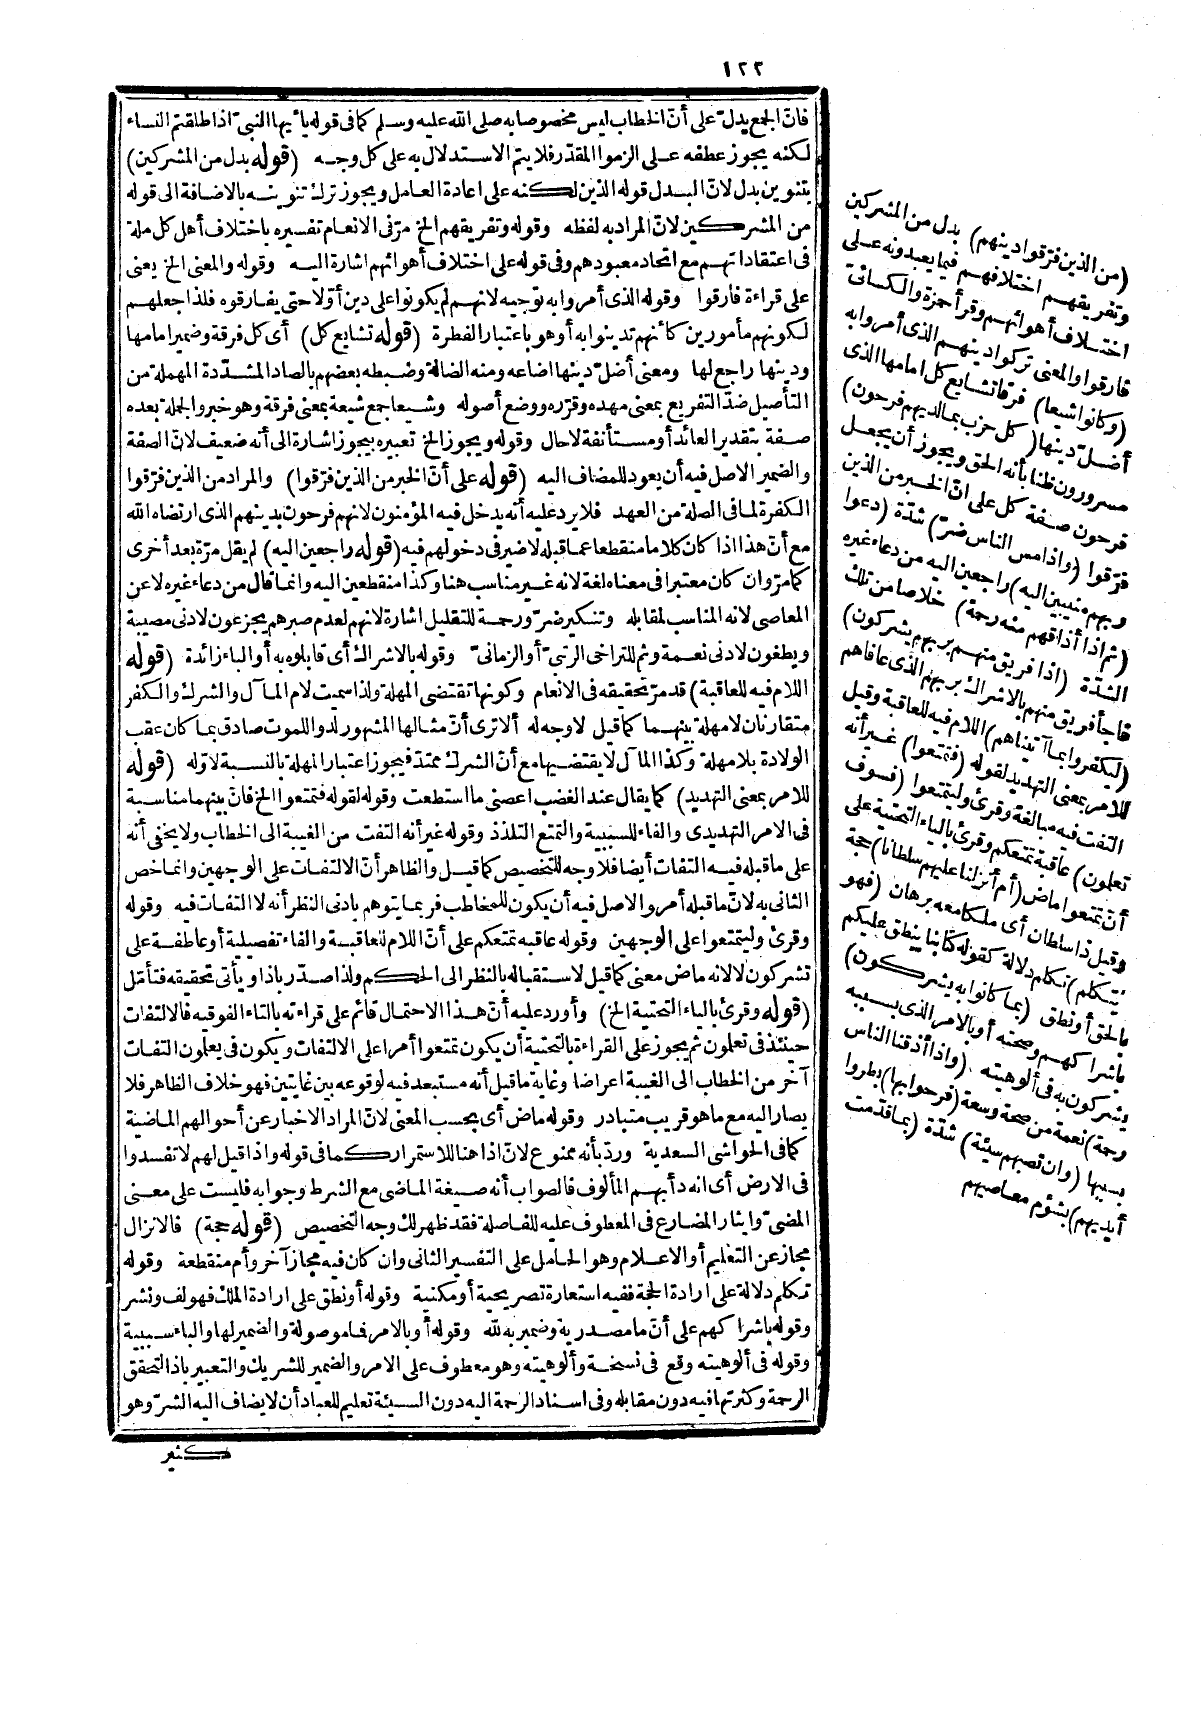 ١٢٢
فانّ الجمع يدلّ على أنّ الخطاب ليس مخصوصا به صلى الله عليه وسلم كما فى قوله يا أيها النبىّ اذا طلقتم النساء
لكنه يجوز عطفه على الزموا المقدّر فلا يتم الاستدلال به على كل وجه (قوله بدل من المشركين)
بتنوين بدل لانّ البدل قوله الذين لكنه على اعادة العامل ويجوز ترك تنوينه بالاضافة الى قوله
من المشركين لانّ المراد به لفظه وقوله وتفريقهم الخ مرّ فى الانعام تفسيره باختلاف أهل كل ملة
فى اعتقاداتهم مع اتحاد معبودهم وفى قوله على اختلاف أهوائهم اشارة اليه وقوله والمعنى الخ يعنى
على قراءة فارقوا وقوله الذى أمروا به توجيه لانهم لم يكونوا على دين أوّلا حتى يفارقوه فلذا جعلهم
لكونهم مأمورين كأنهم تدينوا به أو هو باعتبار الفطرة (قوله تشايع كل) أى كل فرقة وضمير امامها
ودينها راجع لها ومعنى أضلّ دينها اضاعه ومنه الضالة وضبطه بعضهم بالصاد المشدّدة المهملة من
التأصيل ضدّ التفريع بمعنى مهده وقرّره ووضع أصوله وشيعا جمع شيعة بمعنى فرقة وهو خبر والجملة بعده
صفة بتقدير العائد أو مستأنفة لا حال وقوله ويجوز الخ تعبيره بيجوز اشارة الى أنه ضعيف لانّ الصفة
والضمير الاصل فيه أن يعود للمضاف اليه (قوله على أنّ الخبر من الذين فرّقوا) والمراد من الذين فرّقوا
الكفرة لما فى الصلة من العهد فلا يرد عليه أنه يدخل فيه المؤمنون لانهم فرحون بدينهم الذى ارتضاه الله
مع أنّ هذا اذا كان كلاما منقطعا عما قبله لا ضير فى دخولهم فيه (قوله راجعين اليه) لم يقل مرّة بعد أخرى
كما مرّ وان كان معتبرا فى معناه لغة لانه غير مناسب هنا وكذا منقطعين اليه وانما قال من دعاء غيره لا عن
المعاصى لانه المناسب لمقابله وتنكير ضرّ ورحمة للتقليل اشارة لانهم لعدم صبرهم يجزعون لادنى مصيبة
ويطغون لادنى نعمة وثم للتراخى الرتبىّ أو الزمانىّ وقوله بالاشراك أى قابلوه به أو الباء زائدة (قوله
اللام فيه للعاقبة) قد مرّ تحقيقه فى الانعام وكونها تقتضى المهلة ولذا سميت لام المآل والشرك والكفر
متقارنان لا مهلة بينهما كما قيل لا وجه له ألا ترى أنّ مثالها المشهور لدوا للموت صادق بما كان عقب
الولادة بلا مهلة وكذا المآل لا يقتضيها مع أنّ الشرك ممتدّ فيجوز اعتبار المهلة بالنسبة لاوّله (قوله
للامر بمعنى التهديد) كما يقال عند الغضب اعصنى ما استطعت وقوله لقوله فتمتعوا الخ فانّ بينهما مناسبة
فى الامر التهديدى والفاء للسببية والتمتع التلذذ وقوله غير أنه التفت من الغيبة الى الخطاب ولا يخفى أنه
على ما قبله فيه التفات أيضا فلا وجه للتخصيص كما قيل والظاهر أنّ الالتفات على الوجهين وانما خص
الثانى به لانّ ما قبله أمر والاصل فيه أن يكون للمخاطب فربما يتوهم بادنى النظر أنه لا التفات فيه وقوله
وقرئ وليتمتعوا على الوجهين وقوله عاقبه تمتعكم على أنّ اللام للعاقبة والفاء تفصيلية أو عاطفة على
تشركون لا لانه ماض معنى كما قيل لاستقباله بالنظر الى الحكم ولذا صدّر باذا ويأتى تحقيقه فتأمّل
(قوله وقرئ بالياء التحتية الخ) وأورد عليه أنّ هذا الاحتمال قائم على قراءته بالتاء الفوقيه فالالتفات
حينئذ فى تعلمون ثم يجوز على القراءة بالتحتية أن يكون تمتعوا أمرا على الالتفات ويكون فى يعلمون التفات
آخر من الخطاب الى الغيبة اعراضا وغاية ما قيل أنه مستبعد فيه لوقوعه بين غايتين فهو خلاف الظاهر فلا
يصار اليه مع ما هو قريب متبادر وقوله ماض أى بحسب المعنى لانّ المراد الاخبار عن أحوالهم الماضية
كما فى الحواشى السعدية وردّ بأنه ممنوع لانّ اذا هنا للاستمرار كما فى قوله واذا قيل لهم لا تفسدوا
فى الارض أى انه دأبهم المألوف فالصواب أنه صيغة الماضى مع الشرط وجوابه فليست على معنى
المضىّ وايثار المضارع فى المعطوف عليه للفاصلة فقد ظهر لك وجه التخصيص (قوله حجة) فالانزال
مجاز عن التعليم أو الاعلام وهو الحامل على التفسير الثانى وان كان فيه مجاز آخر وأم منقطعة وقوله
تكلم دلالة على ارادة الحجة ففيه استعارة تصريحية أو مكنية وقوله أو نطق على ارادة الملك فهو لف ونشر
وقوله باشراكهم على أنّ ما مصدرية وضمير به لله وقوله أو بالامر فما موصولة والضمير لها والباء سببية
وقوله فى ألوهيته وقع فى نسخة وألوهيته وهو معطوف على الامر والضمير للشريك والتعبير باذا لتحقق
الرحمة وكثرتها فيه دون مقابله وفى اسناد الرحمة اليه دون السيئة تعليم للعباد أن لا يضاف اليه الشرّ وهو
كثير
(من الذين فرّقوا دينهم) بدل من المشركين
وتفريقهم اختلافهم فيما يعبدونه على
اختلاف أهوائهم وقرأ حمزة والكسائىّ
فارقوا والمعنى تركوا دينهم الذى أمروا به
(وكانوا شيعا) فرقا تشايع كل امامها الذى
أضلّ دينها (كل حزب بما لديهم فرحون)
مسرورون ظنا بأنه الحق ويجوز أن يجعل
فرحون صفة كل على انّ الخبر من الذين
فرّقوا (واذا مس الناس ضرّ) شدّة (دعوا
ربهم منيبين اليه) راجعين اليه من دعاء غيره
(ثم اذا أذاقهم منه رحمة) خلاصا من تلك
الشدّة (اذا فريق منهم بربهم يشركون)
فاجأ فريق منهم بالاشراك بربهم الذى عافاهم
(ليكفروا بما آتيناهم) اللام فيه للعاقبة وقيل
للامر بمعنى التهديد لقوله (فتمتعوا) غير أنه
التفت فيه مبالغة وقرئ وليتمتعوا (فسوف
تعلمون) عاقبة تمتعكم وقرئ بالياء التحتية على
أنّ تمتعوا ماض (أم أنزلنا عليهم سلطانا) حجة
وقيل ذا سلطان أى ملكا معه برهان (فهو
يتكلم) تكلم دلالة كقوله كتابنا ينطق عليكم
بالحق أو نطق (بما كانوا به يشركون)
باشراكهم وصحته أو بالامر الذى بسببه
يشركون به فى ألوهيته (واذا أذقنا الناس
رحمة) نعمة من صحة وسعة (فرحوا بها) بطروا
بسببها (وان تصبهم سيئة) شدّة (بما قدّمت
أيديهم) بشؤم معاصيهم